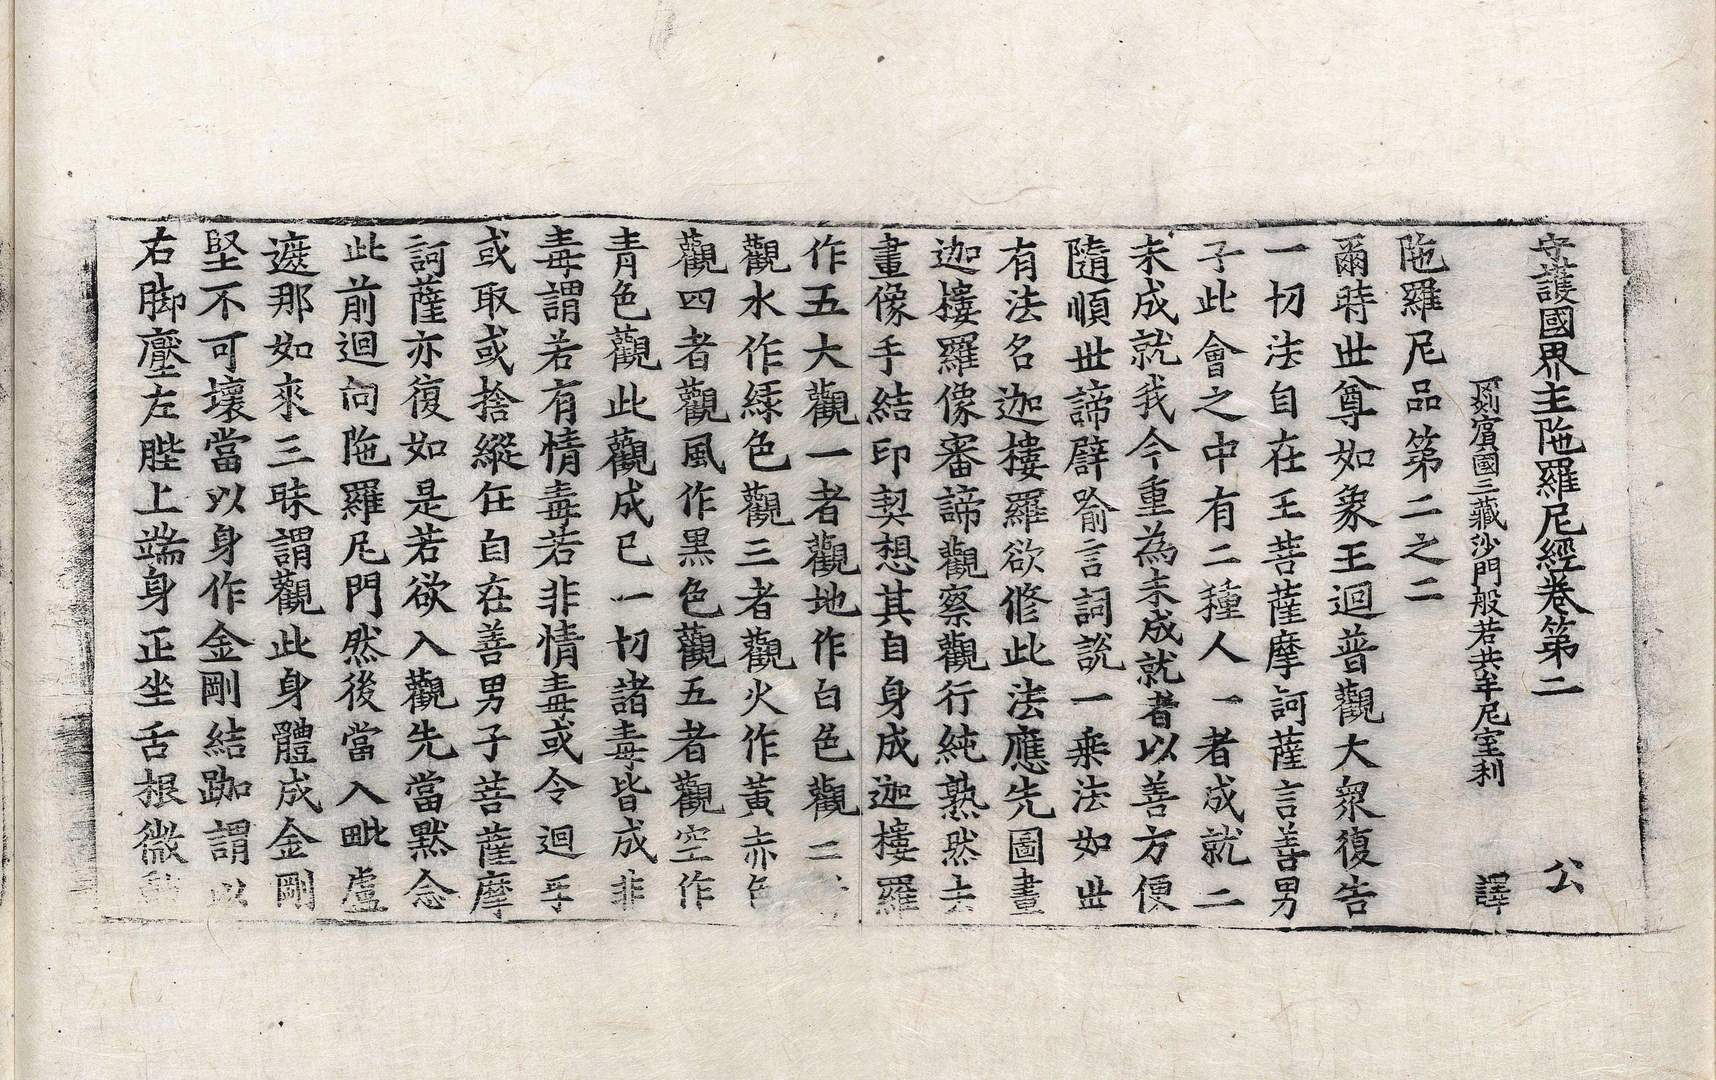 守護國界主陁羅尼經卷第二　公
罽賓國三藏沙門般若共牟尼室利　譯
陁羅尼品第二之二
爾時世尊如象王迴普觀大衆復告
一切法自在王菩薩摩訶薩言善男
子此會之中有二種人一者成就二
未成就我今重為未成就者以善方便
隨順世諦譬喻言詞說一乗法如世
有法名迦樓羅欲修此法應先圖畫
迦樓羅像審諦觀察觀行純熟然去
畫像手結印契想其自身成迦樓羅
作五大觀一者觀地作白色觀二
觀水作緑色觀三者觀火作黃赤色
觀四者觀風作黒色觀五者觀空作
青色觀此觀成已一切諸毒皆成非
毒謂若有情毒若非情毒或令迴乎
或取或捨縱任自在善男子菩薩摩
訶薩亦復如是若欲入觀先當黙念
此前迴向陁羅尼門然後當入毗盧
遮那如來三昧謂觀此身體成金剛
堅不可壞當以身作金剛結跏謂以
右脚壓左䏶上端身正坐舌根微